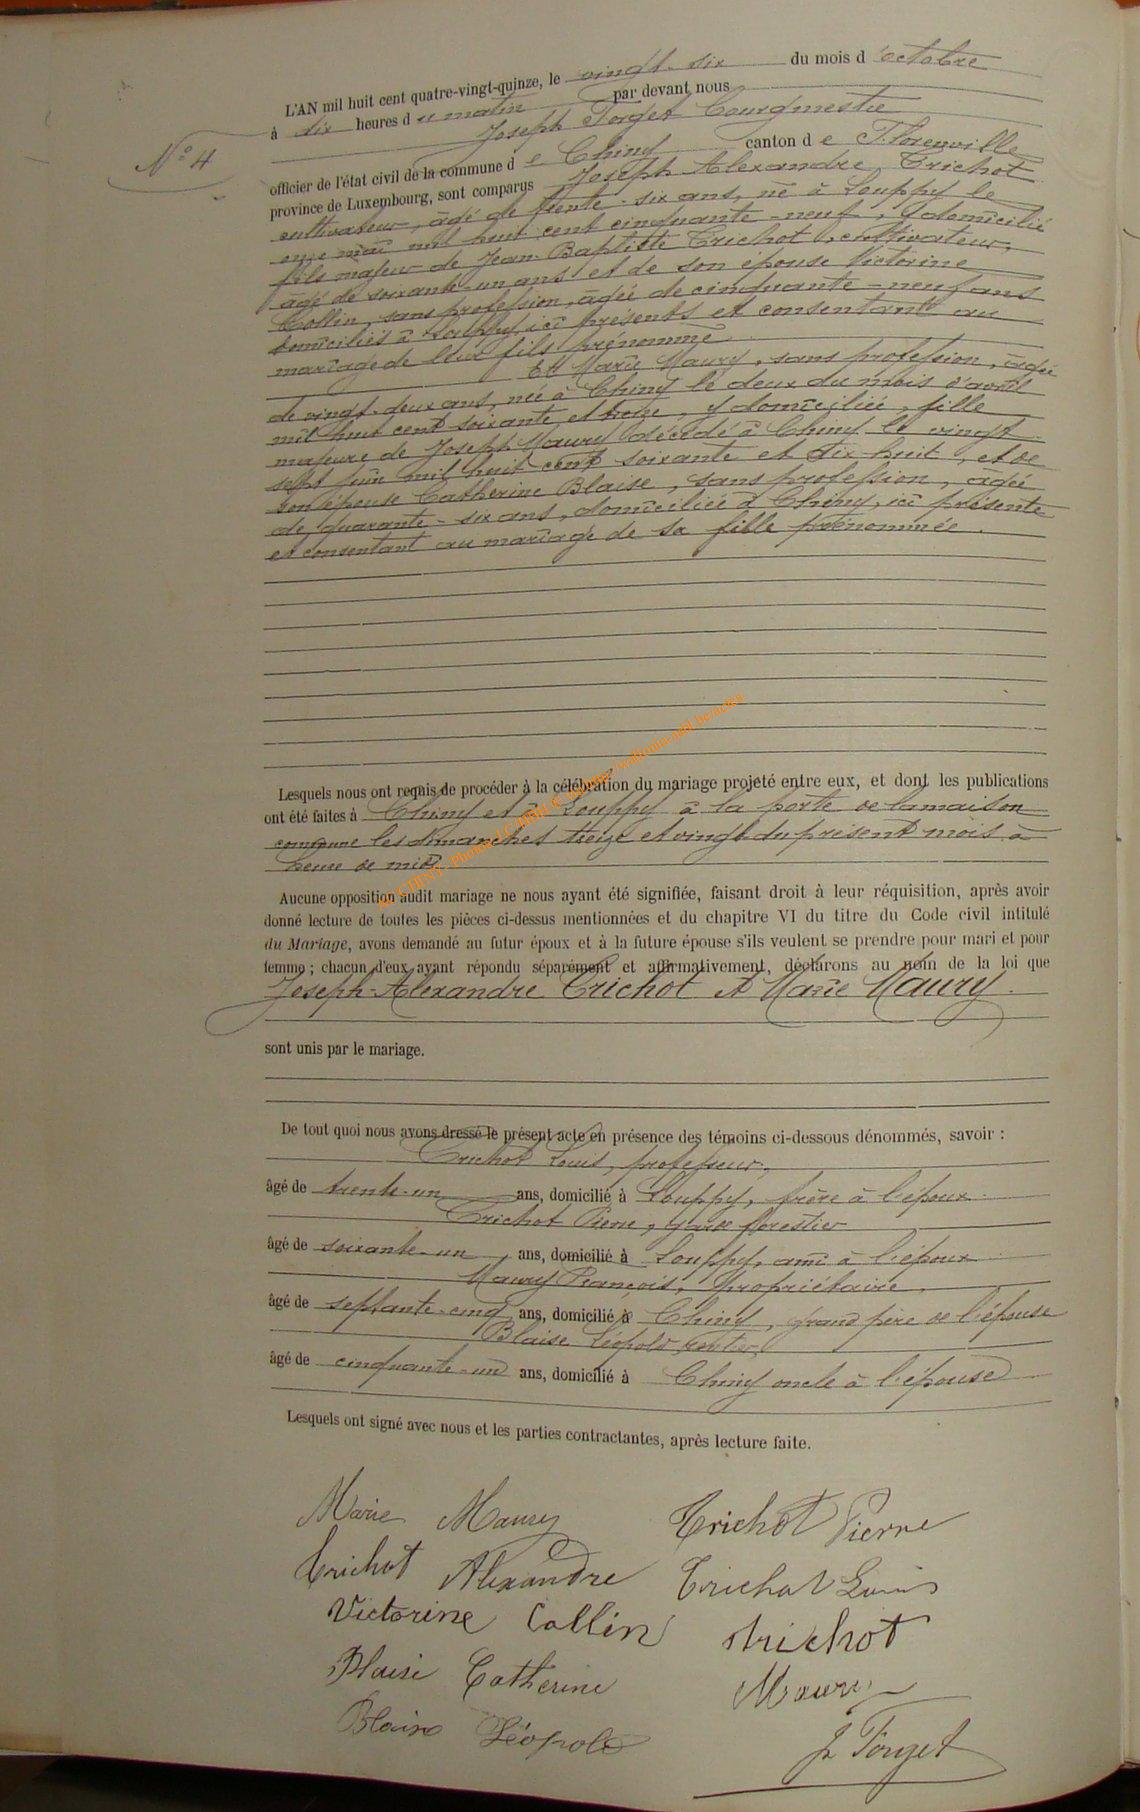 L'AN mil huit cent quatre-vingt-quinze, le vingt-six du mois d'octobre
à dix heures du matin par devant nous
Joseph Forget bourgmestre
N° 4
officier de l'état civil de la commune de Chiny canton de Florenville
province de Luxembourg, sont comparus Joseph Alexandre Trichot
cultivateur, âgé de trente-six ans, né à Louppy le
onze mai mil huit cent cinquante-neuf, y domicilié
fils majeur de Jean-Baptiste Trichot, cultivateur,
âgé de soixante-un ans et de son épouse Victorine
Collin, sans profession, âgée de cinquante-neuf ans
domiciliés à Louppy, ici présents et consentants au
mariage de leur fils prénommé
Et Marie Maury, sans profession, âgée
de vingt-deux ans, née à Chiny le deux du mois d'avril
mil huit cent soixante et treize, y domiciliée, fille
majeure de Joseph Maury décédé à Chiny le vingt
sept juin mil huit cent soixante et dix-huit, et de
son épouse Catherine Blaise, sans profession, âgée
de quarante-six ans, domiciliée à Chiny, ici présente
et consentant au mariage de sa fille prénommée.
Lesquels nous ont requis de procéder à la célébration du mariage projeté entre eux, et dont les publications
ont été faites à Chiny et à Louppy à la porte de la maison
commune les dimanches treize et vingt du présent mois à
heure de midi
Aucune opposition audit mariage ne nous ayant été signifiée, faisant droit à leur réquisition, après avoir
donné lecture de toutes les pièces ci-dessus mentionnées et du chapitre VI du titre du Code civil intitulé
du Mariage, avons demandé au futur époux et à la future épouse s'ils veulent se prendre pour mari et pour
femme ; chacun d'eux ayant répondu séparément et affirmativement, déclarons au nom de la loi que
Joseph-Alexandre Trichot et Marie Maury.
sont unis par le mariage.
De tout quoi nous avons dressé le présent acte en présence des témoins ci-dessous dénommés, savoir :
Trichot Louis, professeur,
âgé de trente-un ans, domicilié à Louppy, frère à l'époux
Trichot Pierre, garde forestier
âgé de soixante-un, ans, domicilié à Louppy, ami à l'époux
Maury François, propriétaire,
âgé de septante-cinq ans, domicilié à Chiny, grand père de l'épouse
Blaise Léopold rentier,
âgé de cinquante-un ans, domicilié à Chiny oncle à l'épouse
Lesquels ont signé avec nous et les parties contractantes, après lecture faite.
Marie Maury Trichot Pierre
Trichot Alexandre Trichot Louis
Victorine Collin Trichot
Blaise Catherine Maury
Blaise Léopold J. Forget